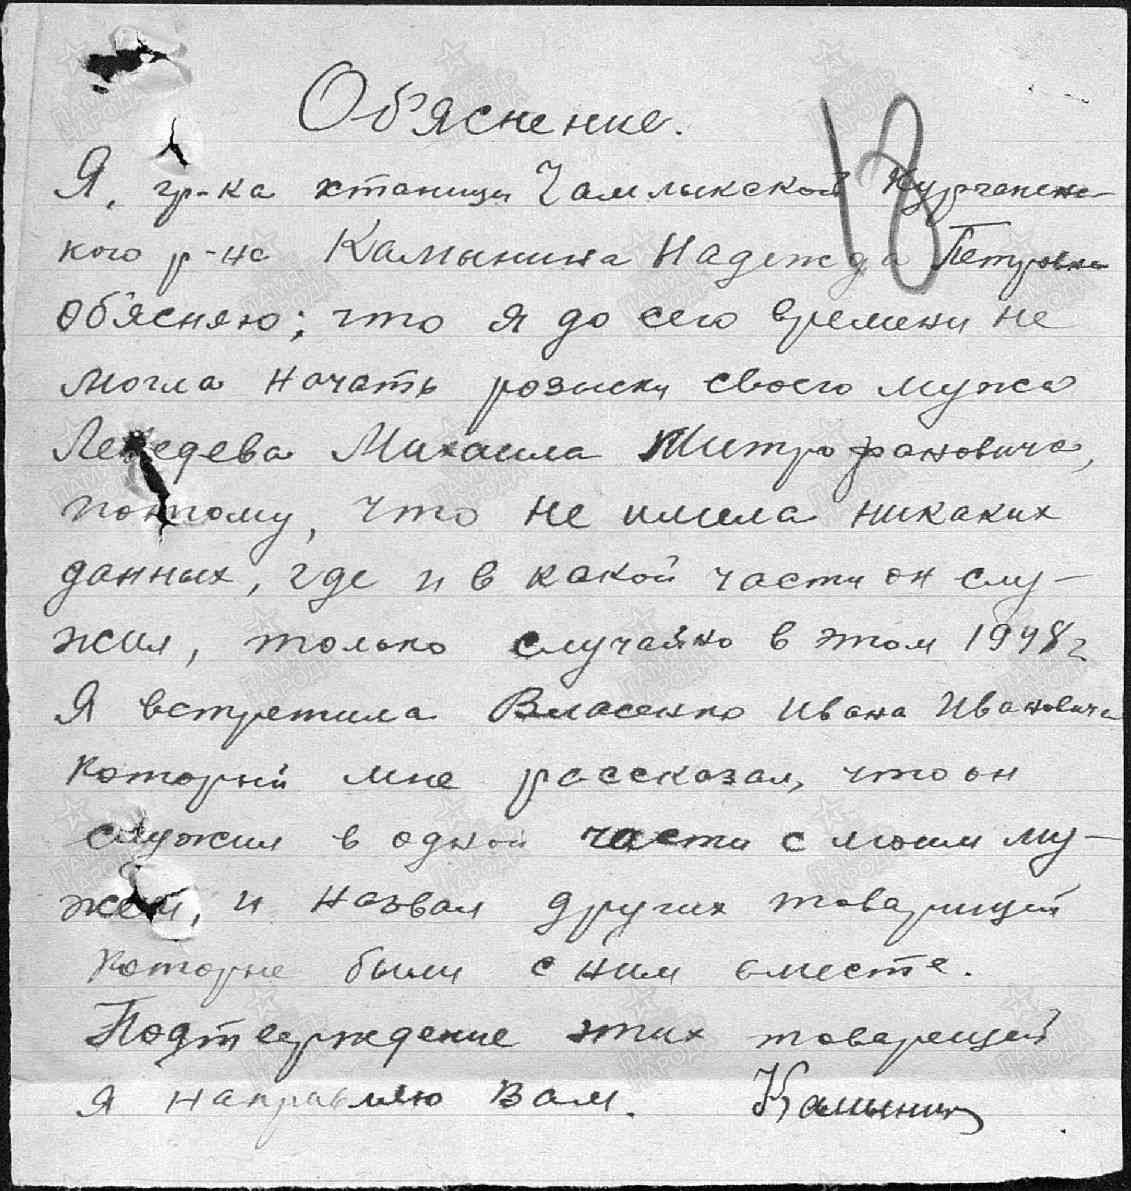 Об'яснение.
18
Я, гр-ка хтаници Чамлыкской Курганенс-
кого р-на Камынина Надежда Петровна
об'ясняю; что я до сего времени не
могла начать розыски своего мужа
Лебедева Михаила Митрофановича,
потому, что не имела никаких
данных, где и в какой части он слу-
жил, только случайно в этом 1948 г
Я встретила Власенко Ивана Ивановича
который мне рассказал, что он
служил в одной части с моим му-
жем, и назвал других товарищей
которые были с ним вместе.
Подтверждение этих товарещей
я направляю Вам. Камынин